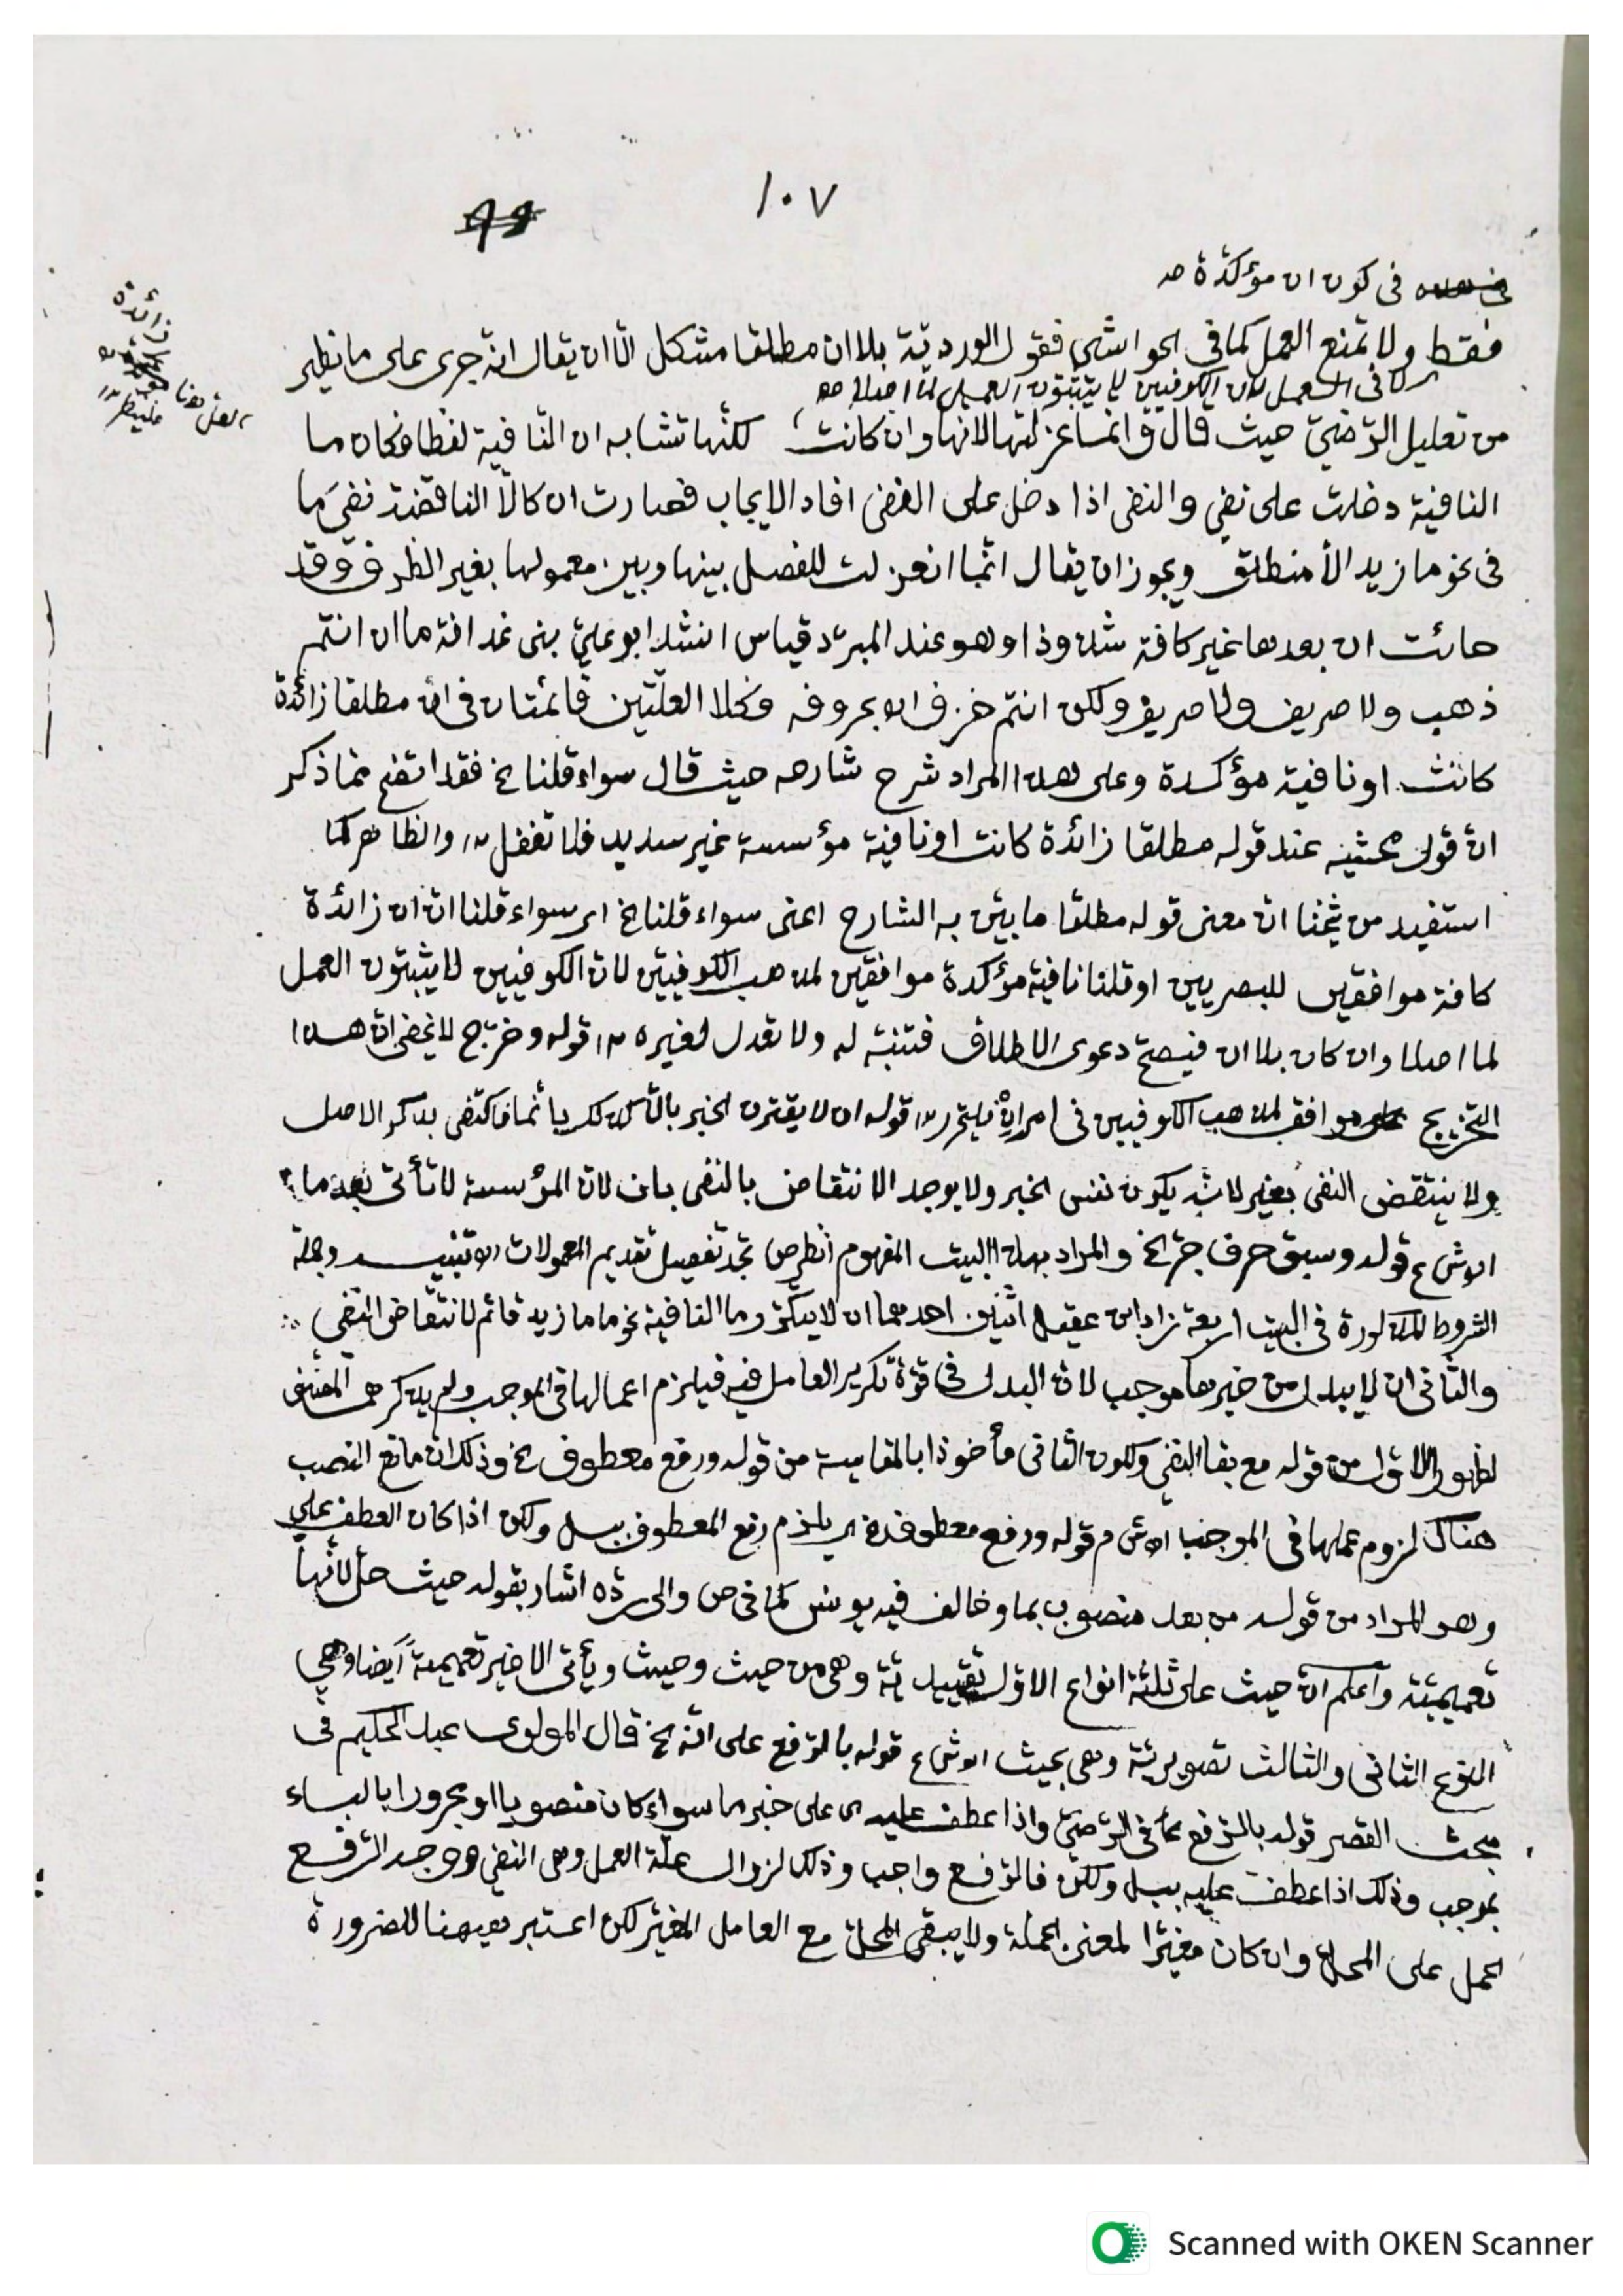 ١٠٧
فى كون ان مؤكدة صـ
فقط ولا تمنع العمل كما فى الحواشى فقول الورديّة بلا ان مطلقا مشكل الّا ان يقال انه جرى على ما يظهر
لا فى العمل لان الكوفيين لا يثبتون العمل لما اصلا صـ
زائدة
من تعليل الرّضىّ حيث قال وانما عزلتها لانها وان كانت لكنّها تشابه ان النّافية لفظا فكان ما
النافية دخلت على نفى والنفى اذا دخل على النفى افاد الايجاب فصارت ان كالّا الناقضة نفى ما
فى نحو ما زيد الّا منطلق ويجوز ان يقال انّما انعزلت للفصل بينها وبين معمولها بغير الظرف وقد
جائت ان بعدها غير كافة شذوذا وهو عند المبرّد قياس انشد ابو علىّ بنى غدانة ما ان انتم
ذهب ولا صريف ولا صريفا ولكن انتم خزف اه بحروفه وكلا العلّتين قائمتان فى ان مطلقا زائدة
كانت او نافية مؤكدة وعلى هذا المراد شرح شارحه حيث قال سواء قلنا الخ فقد اتضح مما ذكر
انّ قول محشيه عند قوله مطلقا زائدة كانت او نافية مؤسسة غير سديد فلا تغفل ١٢ والظاهر كما
استفيد من شيخنا انّ معنى قوله مطلقا ما بيّن به الشارح اعنى سواء قلنا الخ اى سواء قلنا انّ ان زائدة
كافة موافقين للبصريين او قلنا نافية مؤكدة موافقين لمذهب الكوفيّين لانّ الكوفيين لا يثبتون العمل
لما اصلا وان كان بلا ان فيصحّ دعوى الاطلاق فتنبّه له ولا تعدل لغيره ١٢ قوله وخرّج لا يخفى انّ هذا
التخريج موافق لمذهب الكوفيين فى فليحرر ١٢ قوله ان لا يقترن الخبر بالّا فاكتفى بذكر الاصل
ولا ينتقض النفى بغير لانّه يكون نفس الخبر ولا يوجد الانتقاض بالنفى بان لانّ المؤسسة لا تأتى بعد ما
قوله وسبق حرف جرّ الخ والمراد بهذا البيت المفهوم تجد تفصيل تقديم المعمولات وجملة
الشروط المذكورة فى البيت اربعة زاد ابن عقيل اثنين احدهما ان لا يتكرّر ما النافية نحو ما ما زيد قائم لانتقاض النفى
والثّانى ان لا يبدل من خبرها موجب لانّ البدل فى قوّة تكرير العامل فيه فيلزم اعمالها فى الموجب ولم يذكرهما المصنف
لظهور الاوّل من قوله مع بقا النفى ولكون الثّانى مأخوذا بالمقايسة من قوله ورفع معطوف الخ وذلك انّ مانع النصب
هناك لزوم عملها فى الموجب قوله ورفع معطوف اى يلزم رفع المعطوف ببل ولكن اذا كان العطف على
وهو المراد من قوله من بعد منصوب بما وخالف فيه يونس كما فى ص والى ردّه اشار بقوله حيث حل لانّها
تعميميّة واعلم انّ حيث على ثلثة انواع الاوّل تقييديّة وهى من حيث وحيث ويأتى الاخير تعميمية ايضا وهى
النوع الثانى والثالث تصويريّة وهى بحيث قوله بالرّفع على انّه الخ قال المولوى عبد الحكيم فى
مبحث القصر قوله بالرّفع كما فى الرّضىّ واذا عطف عليه اى على خبر ما سواء كان منصوبا او مجرورا بالباء
بموجب وذلك اذا عطف عليه ببل ولكن فالرّفع واجب وذلك لزوال علّة العمل وهى النفى ووجه الرّفع
الحمل على المحلّ وان كان مغيّرا لمعنى الجملة ولا يبقى المحلّ مع العامل المغيّر لكن اعتبر ههنا للضرورة
Scanned with OKEN Scanner